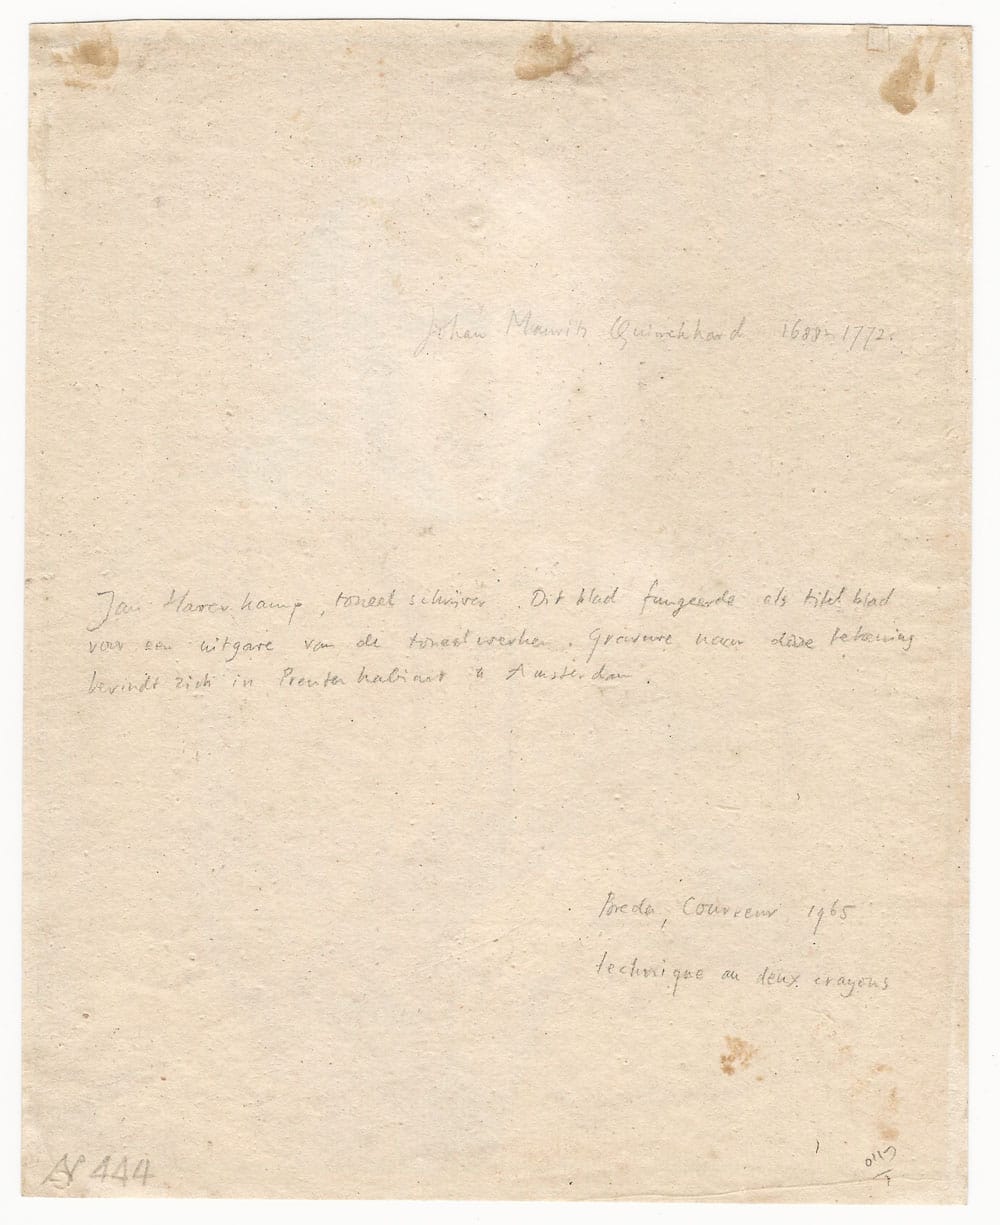 Johan Maurits Quinckhard 1688-1772.
Jan Haverkamp, toneelschrijver. Dit blad fungeerde als titelblad
voor een uitgave van de toneelwerken. Gravure naar deze tekening
bevindt zich in Prentenkabinet Amsterdam.
Breda, Couvreur 1965
technique au deux crayons
N 444